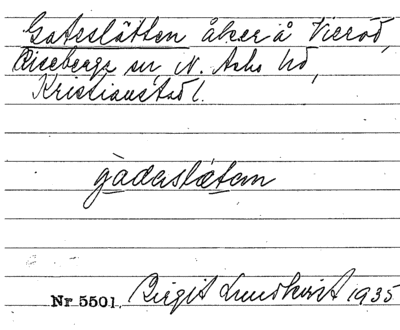 Gatsslätten åker å Vieröd,
Riseberga sn, N. Asbo hd,
Kristianstad l.
gàdaslætən
Nr 5501. Birgit Lundkvist 1935